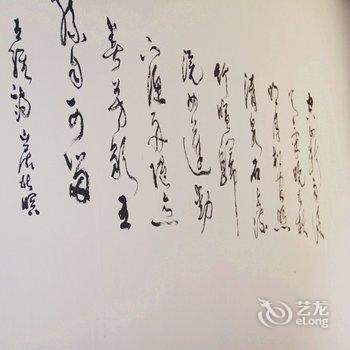 空山新雨後
天氣晚來秋
明月松間照
清泉石上流
竹喧歸
浣女蓮動
下漁舟隨意
春芳歇王
孫自可留
王維詩山居秋暝
艺龙
eLong